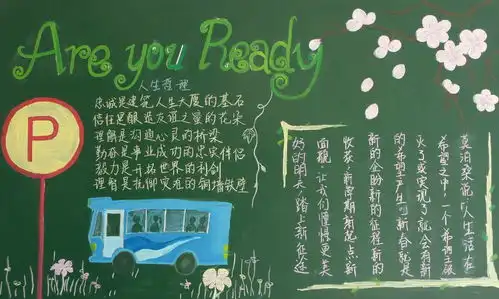 Are you Ready
人生哲理
忠诚是建筑人生大厦的基石
信任是酿造友谊之蜜的花朵
理解是沟通心灵的桥梁
勤奋是事业成功的忠实伴侣
毅力是开拓世界的利剑
理智是抵御灾难的铜墙铁壁
P
莫泊桑说人生活在
希望之中,一个希望破
灭了或实现了就会有新
的希望产生,新春就是
新的企盼新的征程新的
收获,新周期新起点新
面貌,让我们憧憬更美
好的明天,踏上新征途